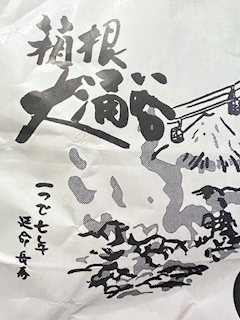 箱根
大涌谷
一つで七年
延命長寿